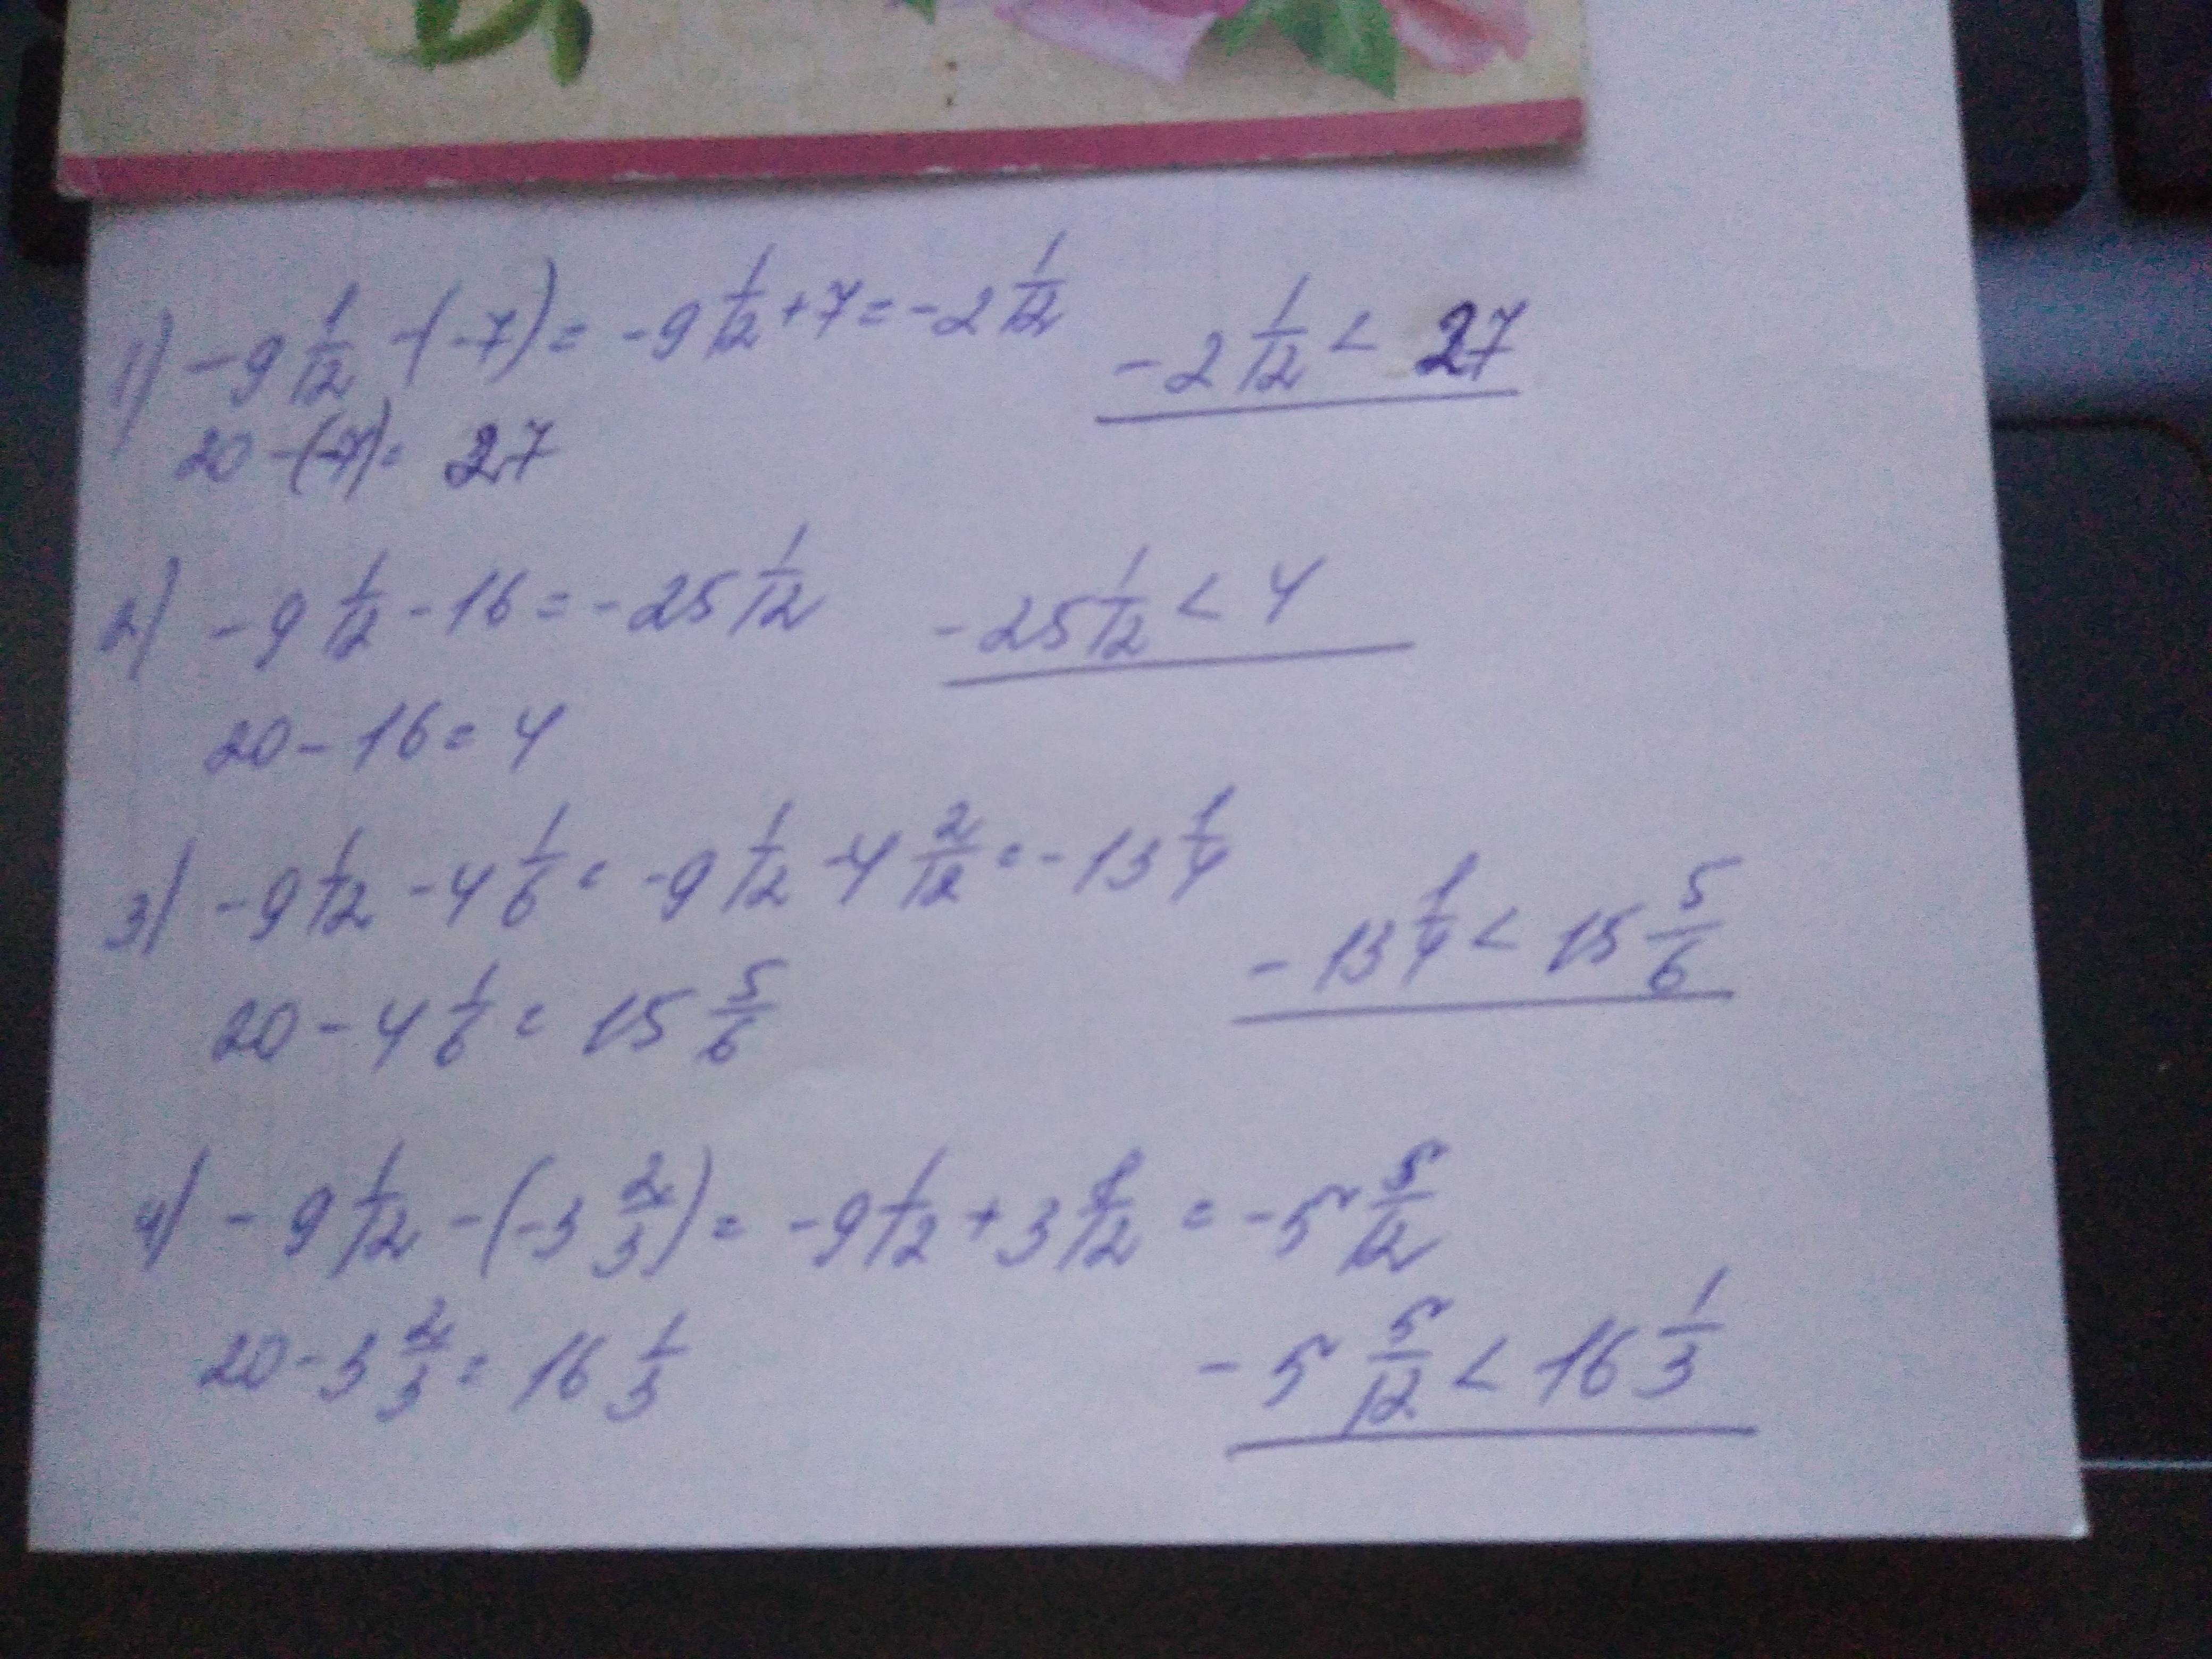 1) -9 1/12 -(-7) = -9 1/12 + 7 = -2 1/12 -2 1/12 < 27
20 -(-7) = 27
2) -9 1/12 - 16 = -25 1/12 -25 1/12 < 4
20 - 16 = 4
3) -9 1/12 - 4 1/6 = -9 1/12 - 4 2/12 = -13 1/4
-13 1/4 < 15 5/6
20 - 4 1/6 = 15 5/6
4) -9 1/12 - (-3 2/3) = -9 1/12 + 3 8/12 = -5 5/12
20 - 3 2/3 = 16 1/3 -5 5/12 < 16 1/3